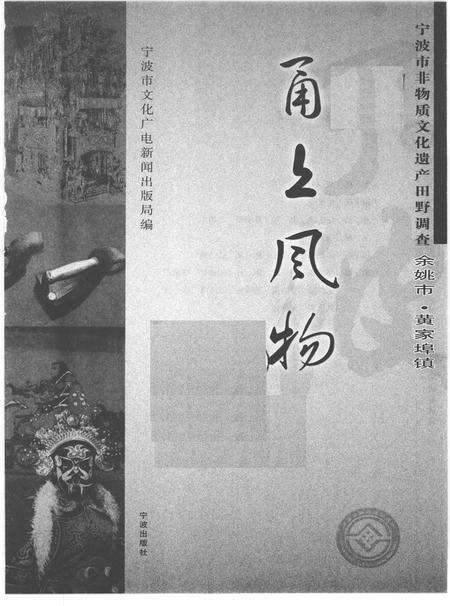 宁波市非物质文化遗产田野调查 余姚市·黄家埠镇
甬上风物
宁波市文化广电新闻出版局编
宁波出版社